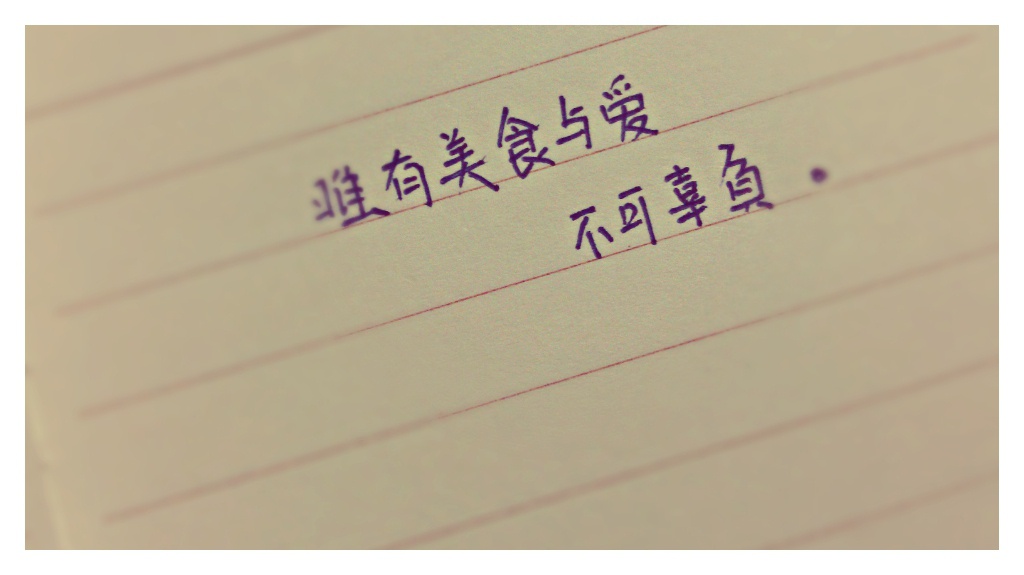 唯有美食与爱
不可辜负.